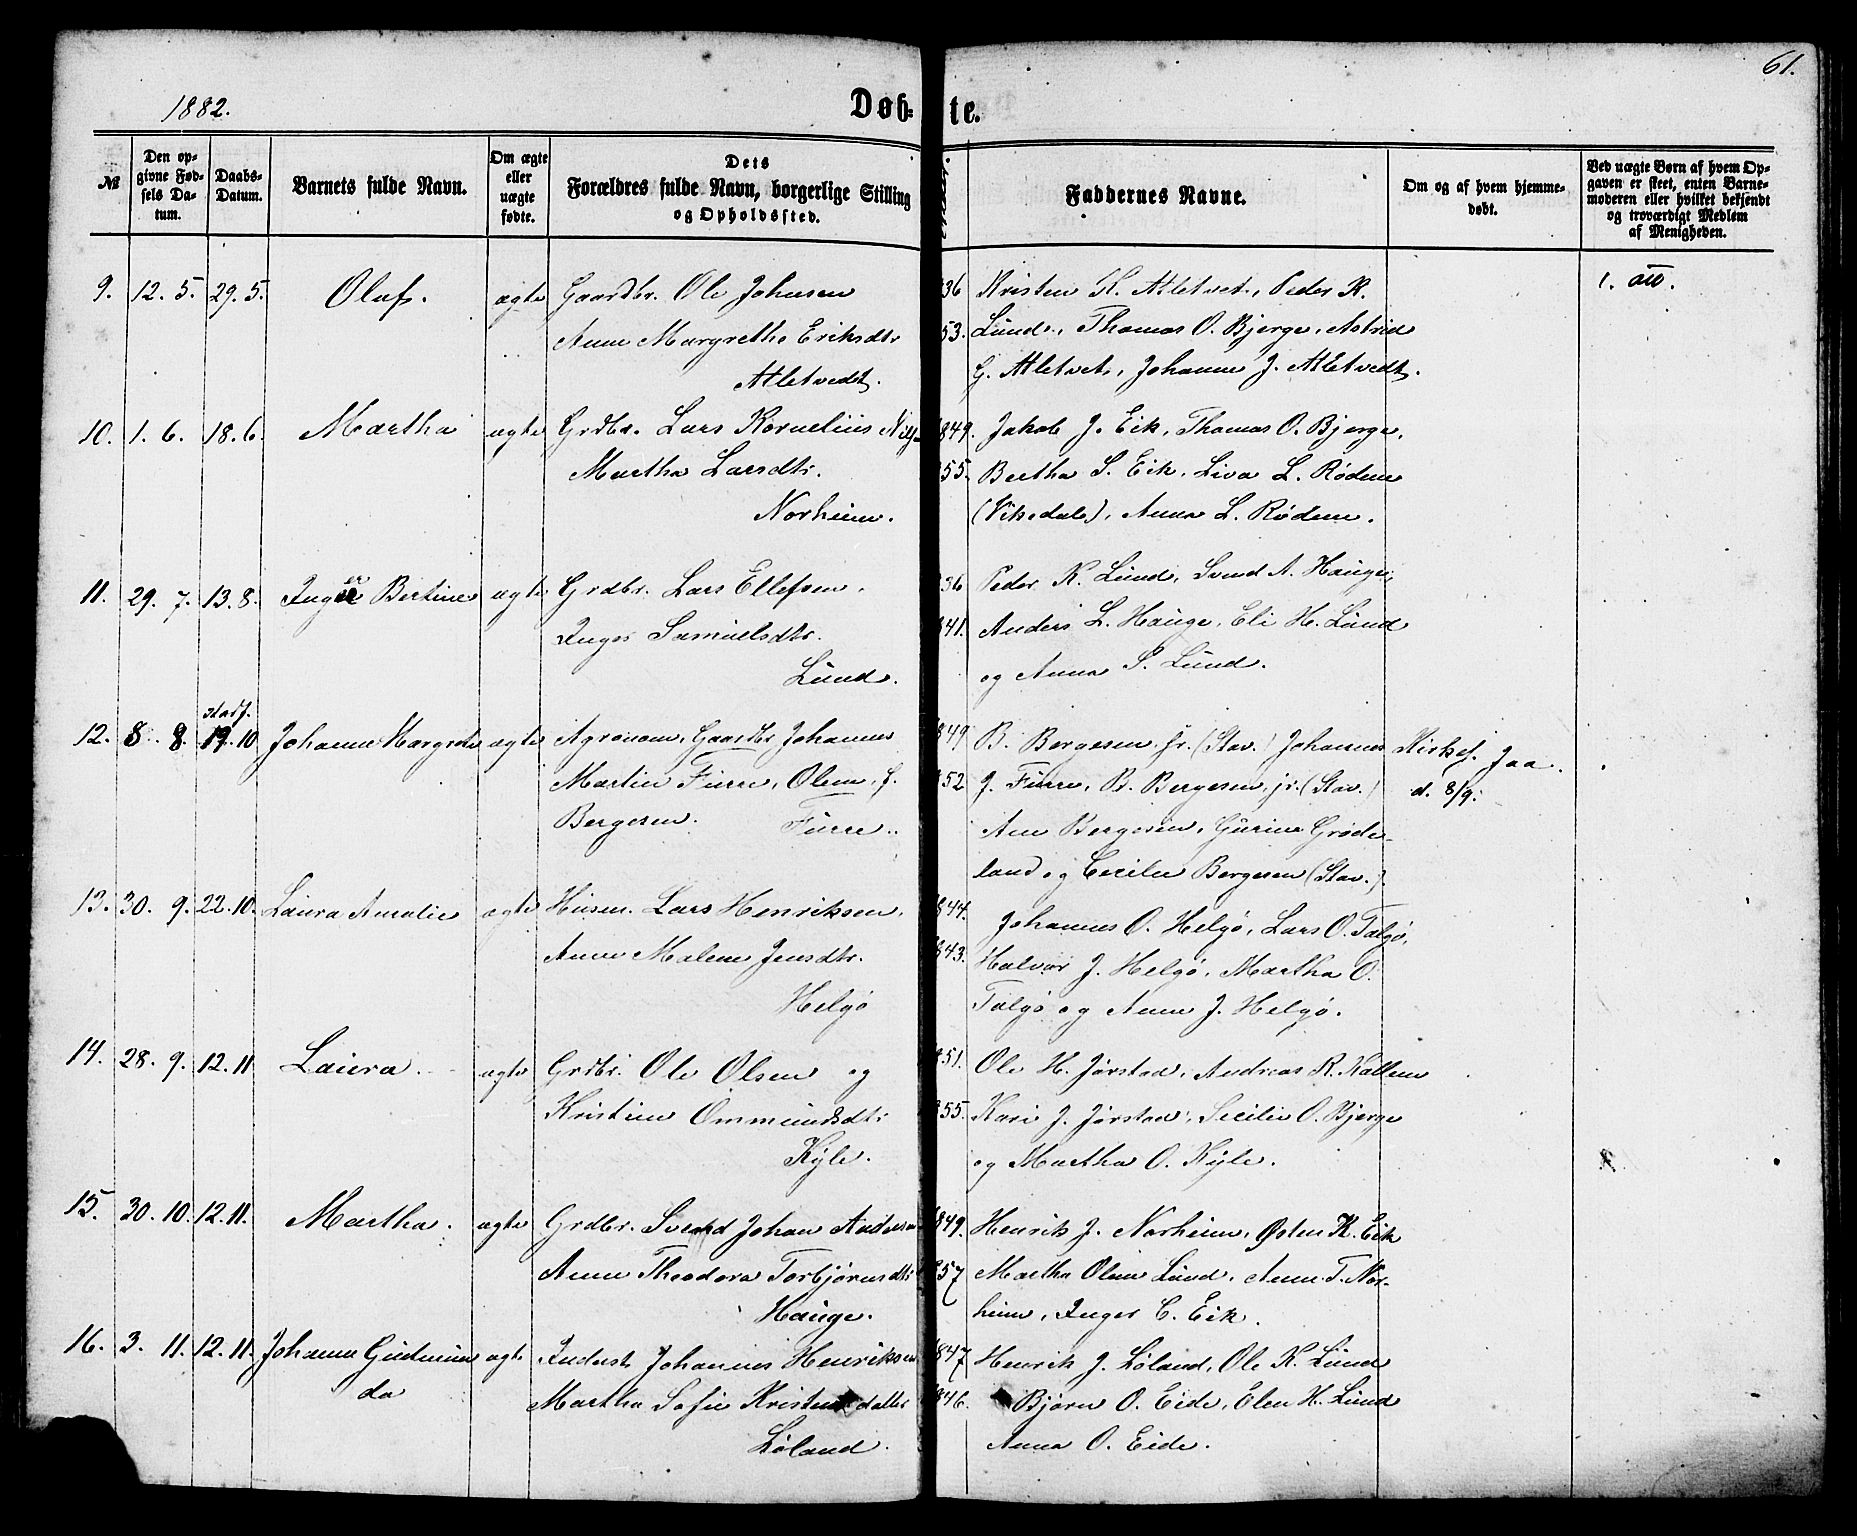 61.
1882. Døb- te.
№ Den opgivne Fødsels Datum. Daabs-Datum. Barnets fulde Navn. Om ægte eller uægte fødte. Dets Forældres fulde Navn, borgerlige Stilling og Opholdssted. Faddernes Navne. Om og af hvem hjemmedøbt. Ved uægte Børn af hvem Opgaven er skeet, enten Barnemoderen eller hvilket bekjendt og troværdigt Medlem af Menigheden.
9. 12. 5. 29. 5. Olaf. ægte Gaardbr. Ole Johnsen 36 Kristen K. Atletvet, Peder K. 1. att.
Anne Margrethe Eriksdtr 53. Lund, Thomas O. Bjerge, Astrid
Atletvedt. G. Atletvet, Johanne J. Atletvedt.
10. 1. 6. 18. 6. Martha ægte Grdbr. Lars Kornelius Nils 849. Jakob J. Eik, Thomas O. Bjerge,
Martha Larsdtr. 55. Bertha S. Eik, Liva L. Rødne
Norheim. (Vikedal), Anna L. Rødne.
11. 29. 7. 13. 8. Inger Bertine ægte Grdbr. Lars Ellefsen, 36 Peder K. Lund, Svend A. Hauge,
Inger Samuelsdtr. 841. Anders L. Hauge, Eli H. Lund
Lund. og Anna S. Lund.
stadf.
12. 8. 8. 19. 10 Johanne Margrete ægte Agronom, Gaardbr Johannes 849 B. Bergesen sr. (Stav.) Johannes Kirkes. Jaa.
Martin Furre, Olene f. 852 J. Furre, B. Bergesen, jr. (Stav.) d. 8/9.
Bergesen. Furre. Ane Bergesen, Gurine Grøde-
land og Cecilie Bergesen (Stav.).
13. 30. 9. 22. 10. Laura Amalie ægte Husm. Lars Henriksen, 844. Johannes O. Helgø, Lars O. Talgø,
Anne Malene Jensdtr. 843. Halvor J. Helgø, Martha O.
Helgø Talgø og Anne J. Helgø.
14. 28. 9. 12. 11 Laura. ægte Grdbr. Ole Olsen og 851. Ole H. Jørstad, Andreas R. Kallem
Kristine Ommundsdtr 855. Kari J. Jørstad, Secilie O. Bjerge
Kyle. og Martha O. Kyle.
15. 30. 10. 12. 11. Martha. ægte Grdbr. Svend Johan Andersen 849. Henrik J. Norheim, Østen K. Eik
Anne Theodora Torbjørnsdtr 857 Martha Oline Lund, Anne T. Nor-
Hauge. heim, Inger C. Eik.
16. 3. 11. 12. 11. Johanne Gudmun- ægte Inderst Johannes Henriksen 847 Henrik J. Løland, Ole K. Lund
da Martha Sofie Kristensdatter 846. Bjørn O. Eide, Elen H. Lund
Løland. Anna O. Eide.